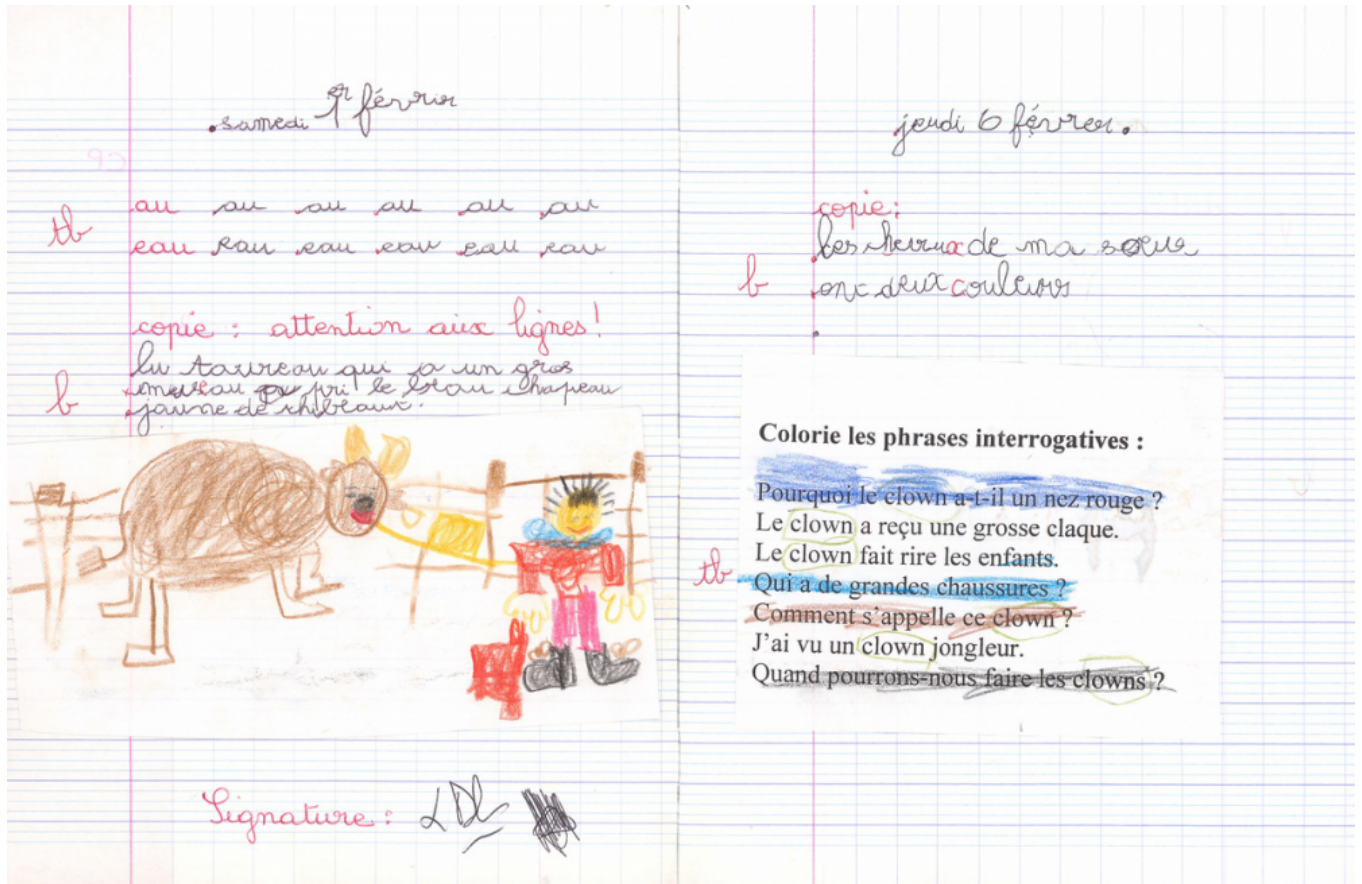 samedi 1er févrir
tb
au au au au au au
eau eau eau eau eau eau
copie : attention aux lignes !
lu taureau qui a un gros
b
museau pri le beau chapeau
jaune de thibeaux.
Signature : LDL
jeudi 6 févrer.
copie :
les cheveux de ma sœur
b
onc deux couleurs
Colorie les phrases interrogatives :
Pourquoi le clown a-t-il un nez rouge ?
Le clown a reçu une grosse claque.
Le clown fait rire les enfants.
tb
Qui a de grandes chaussures ?
Comment s'appelle ce clown ?
J'ai vu un clown jongleur.
Quand pourrons-nous faire les clowns ?